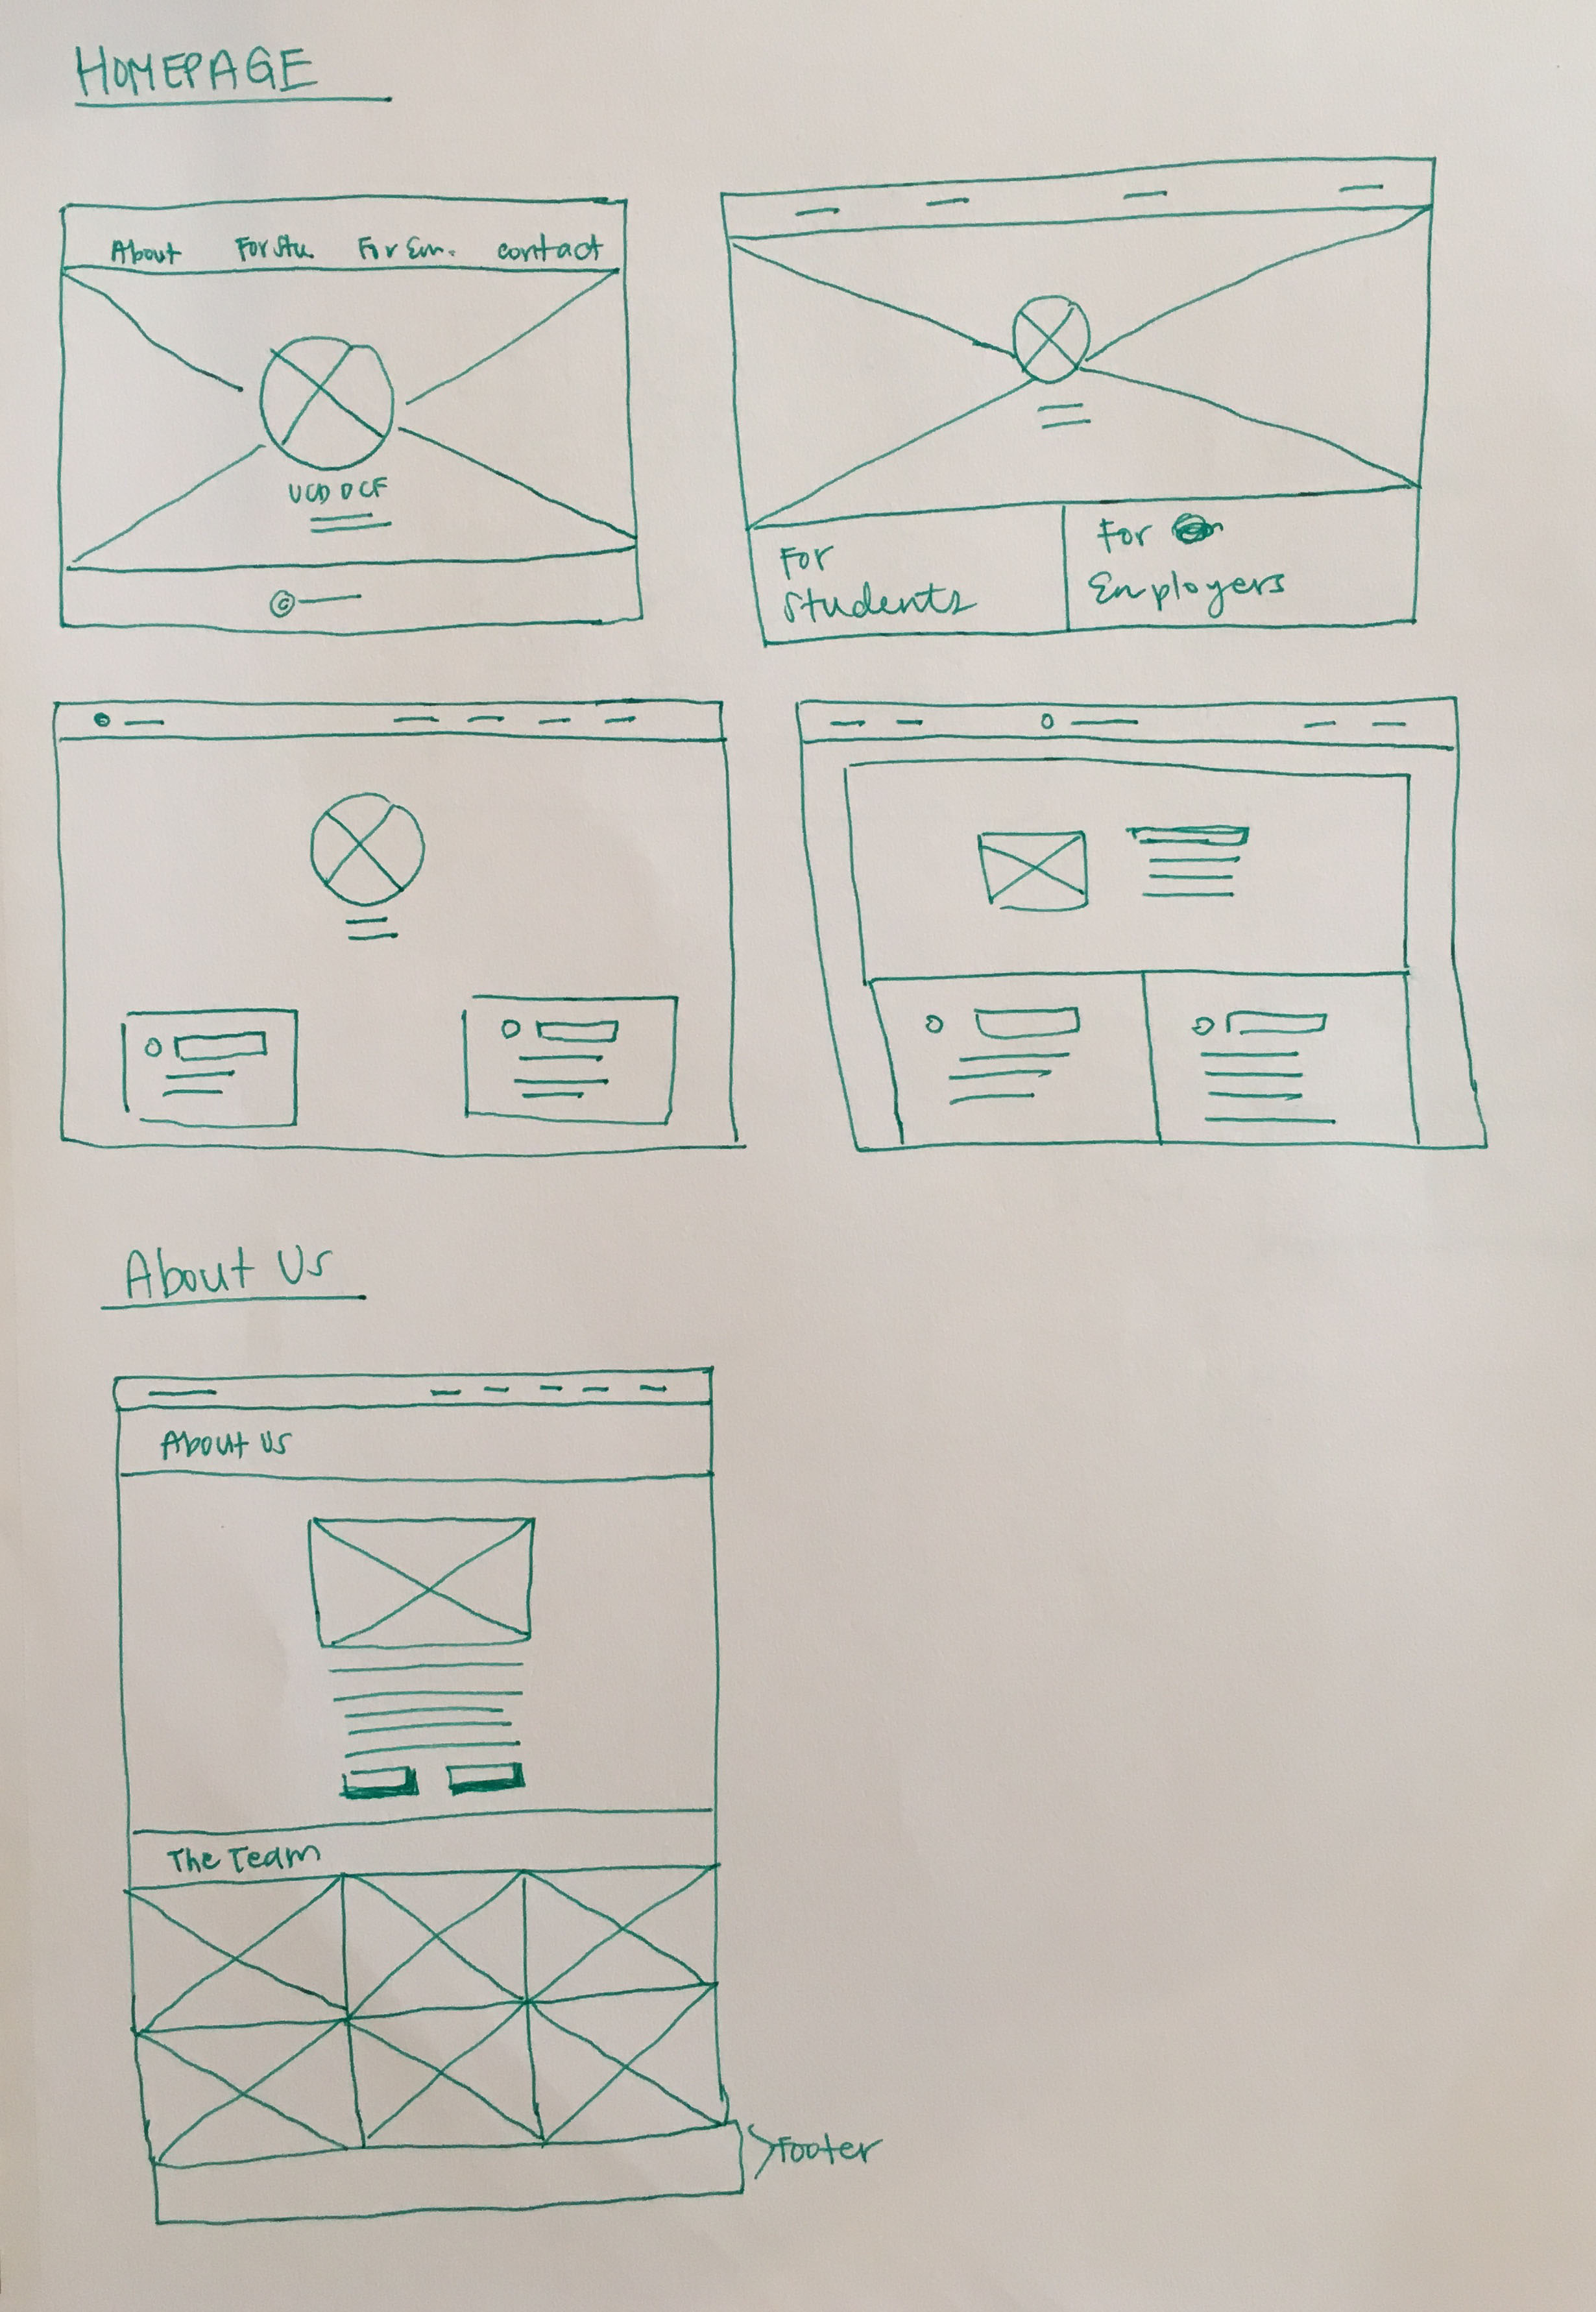 HOMEPAGE
About For Stu. For Em. contact
UCD OCF
©
For
Students
For
Employers
About Us
About Us
The Team
Footer